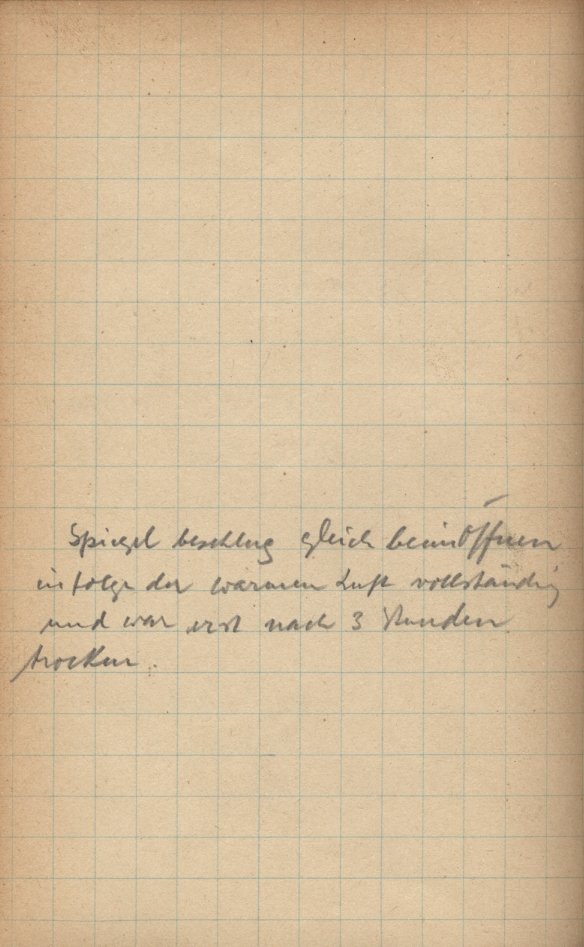 Spiegel beschlug gleich beim Öffnen
infolge der warmen Luft vollständig
und war erst nach 3 Stunden
trocken.